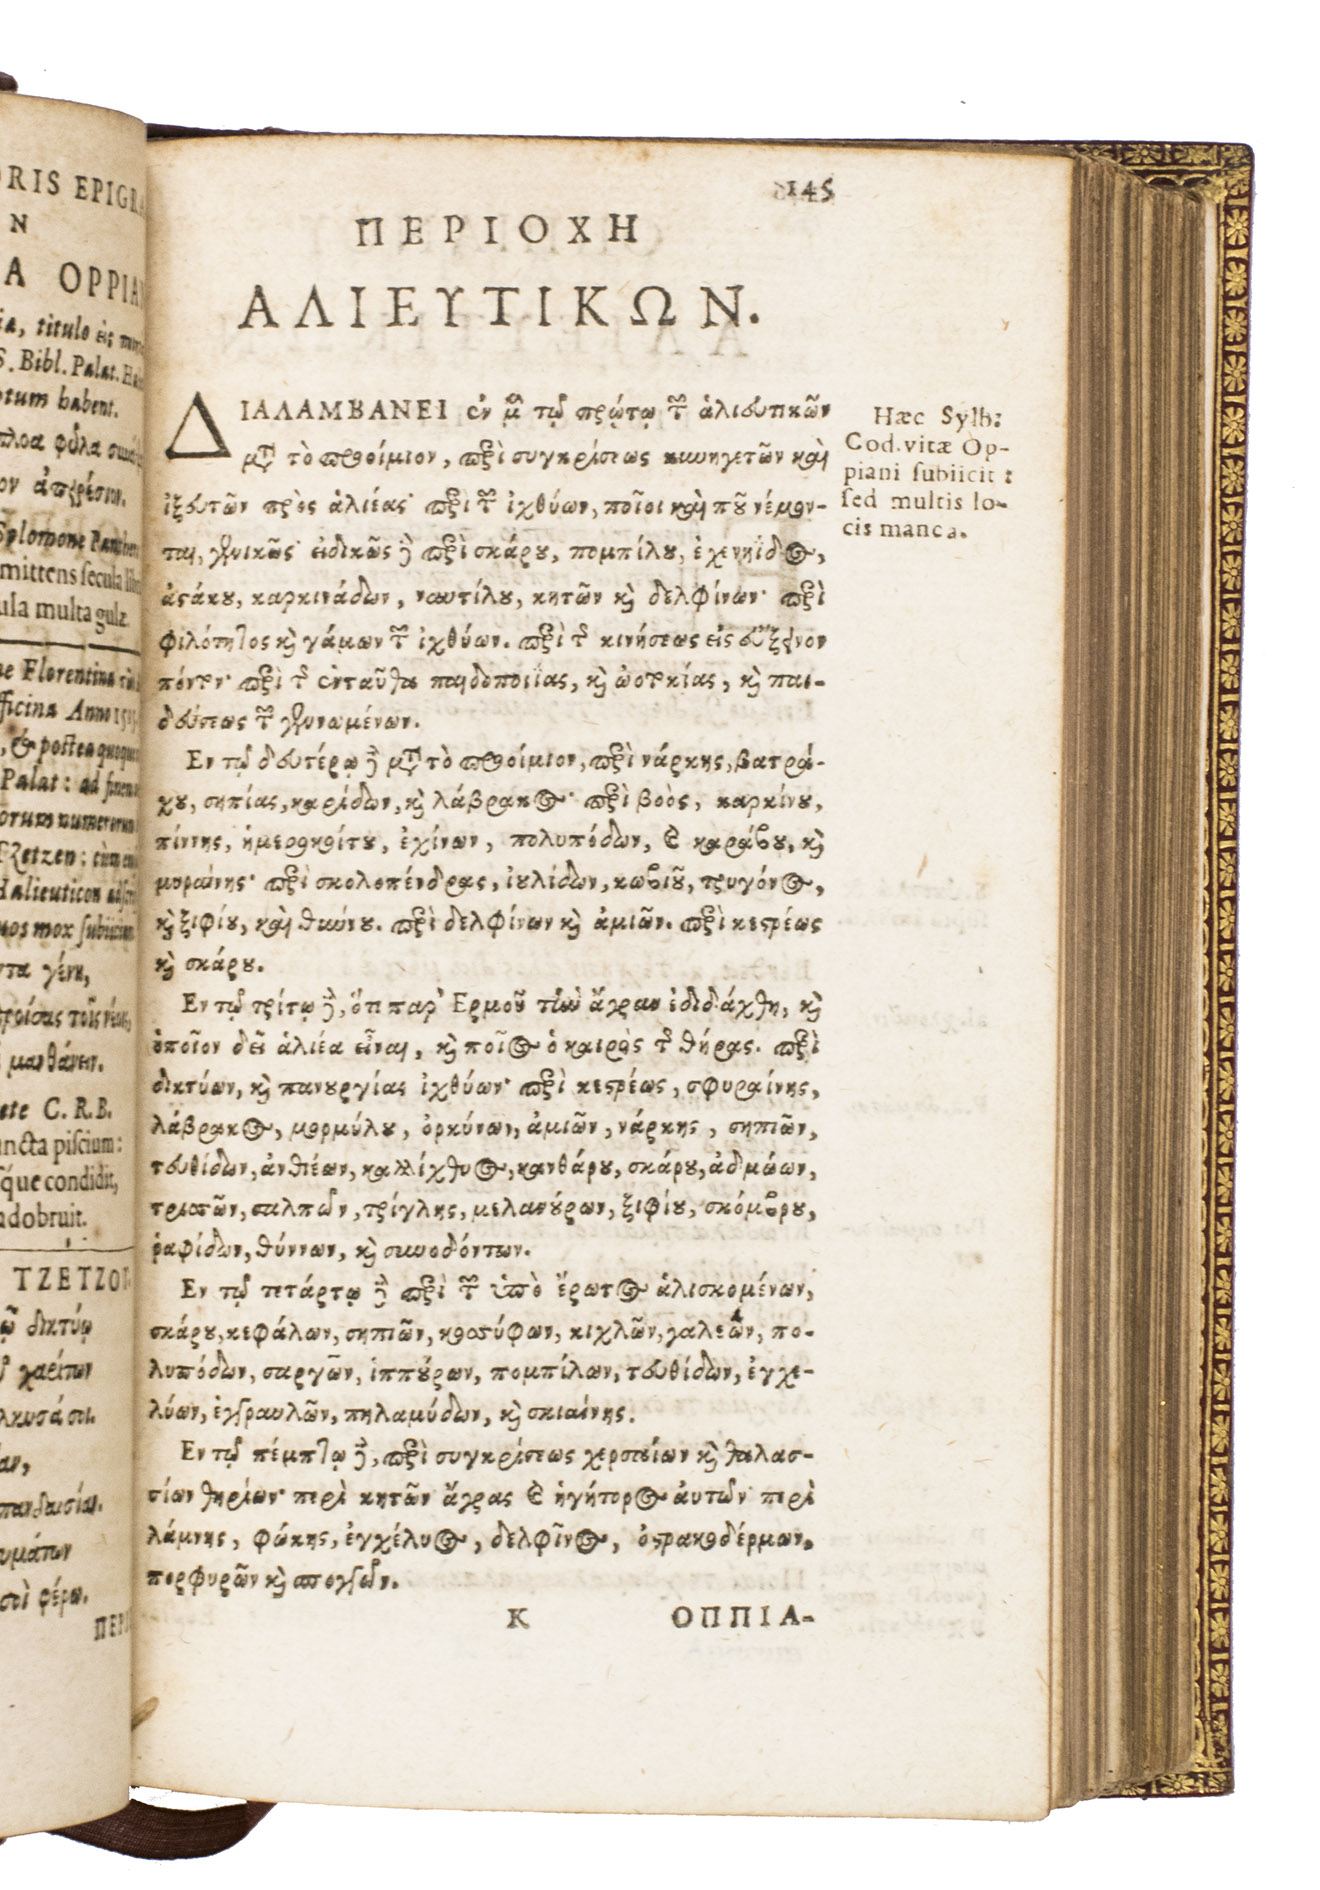 ORIS EPIGRA
N
A OPPIAN
ia, titulo εἰς
S. Bibl. Palat.
otum habent.
πλοα φῦλα
ον ἀπειρέσιον.
Sylomone
mittens secula
ula multa gulæ.
ne Florentina
fficina Anno
, & postea
Palat: ad
orum numerorum
Tzetzen:
Halieuticon
uos mox
ντα γένη,
μανθάνειν.
ete C. R. B.
uncta piscium:
q́ue condidit,
adobruit.
TZETZOΥ
ῳ δικτύῳ
χαρίτων
αν,
πανδαισίαν.
υμάτων
σοὶ φέρω.
ΠΕΡΙ
145
ΠΕΡΙΟΧΗ
ΑΛΙΕΥΤΙΚΩΝ.
ΔΙΑΛΑΜΒΑΝΕΙ ἐν μὲν τῷ πρώτῳ τῶν ἁλιευτικῶν
μετὰ τὸ προοίμιον, περὶ συγκρίσεως κυνηγετῶν καὶ
ἰξευτῶν πρὸς ἁλιέας· περὶ τῶν ἰχθύων, ποῖοι καὶ ποῦ νέμον-
ται, γενικῶς· εἰδικῶς δὲ περὶ σκάρου, πομπίλου, ἐχενηΐδος,
ἀστάκου, καρκινάδων, ναυτίλου, κητῶν καὶ δελφίνων· περὶ
φιλότητος καὶ γάμων τῶν ἰχθύων. περὶ τῆς κινήσεως εἰς εὔξεινον
πόντον· περὶ τῆς ἐνταῦθα παιδοποιΐας, καὶ ὠοτοκίας, καὶ παι-
δεύσεως τῶν γεννωμένων.
Εν τῷ δευτέρῳ δὲ μετὰ τὸ προοίμιον, περὶ νάρκης, βατρά-
χου, σηπίας, καρίδων, καὶ λάβρακος· περὶ βοὸς, καρκίνου,
πίννης, ἡμεροκοίτου, ἐχίνων, πολυπόδων, καὶ καράβου, καὶ
μυραίνης· περὶ σκολοπένδρας, ἰουλίδων, κωβιοῦ, τρυγόνος,
καὶ ξιφίου, καὶ θύννου. περὶ δελφίνων καὶ ἀμιῶν. περὶ κεστρέως
καὶ σκάρου.
Εν τῷ τρίτῳ δὲ, ὅτι παρ' Ερμοῦ τὴν ἄγραν ἐδιδάχθη, καὶ
ὁποῖον δεῖ ἁλιέα εἶναι, καὶ ποῖος ὁ καιρὸς τῆς θήρας. περὶ
δικτύων, καὶ πανουργίας ἰχθύων· περὶ κεστρέως, σφυραίνης,
λάβρακος, μορμύλου, ὀρκύνων, ἀμιῶν, νάρκης, σηπιῶν,
τευθίδων, ἀνθιέων, καλλίχθυος, κανθάρου, σκάρου, ἀδμώων,
τριστῶν, σαλπῶν, τρίγλης, μελανούρων, ξιφίου, σκόμβρου,
ῥαφίδων, θύννων, καὶ συνοδόντων.
Εν τῷ τετάρτῳ δὲ περὶ τῶν ὑπὸ ἔρωτος ἁλισκομένων,
σκάρου, κεφάλων, σηπιῶν, κοσσύφων, κιχλῶν, γαλεῶν, πο-
λυπόδων, σαργῶν, ἱππούρων, πομπίλων, τευθίδων, ἐγχε-
λύων, ἐγγραυλῶν, πηλαμύδων, καὶ σκιαίνης.
Εν τῷ πέμπτῳ δὲ, περὶ συγκρίσεως χερσαίων καὶ θαλασ-
σίων θηρίων· περὶ κητῶν ἄγρας καὶ ἡγήτορος αὐτῶν· περὶ
λάμνης, φώκης, ἐγχέλυος, δελφῖνος, ὀστρακοδέρμων,
πορφυρῶν καὶ σπόγγων.
Κ ΟΠΠΙΑ-
Hæc Sylb:
Cod. vitæ Op-
piani subiicit:
sed multis lo-
cis manca.